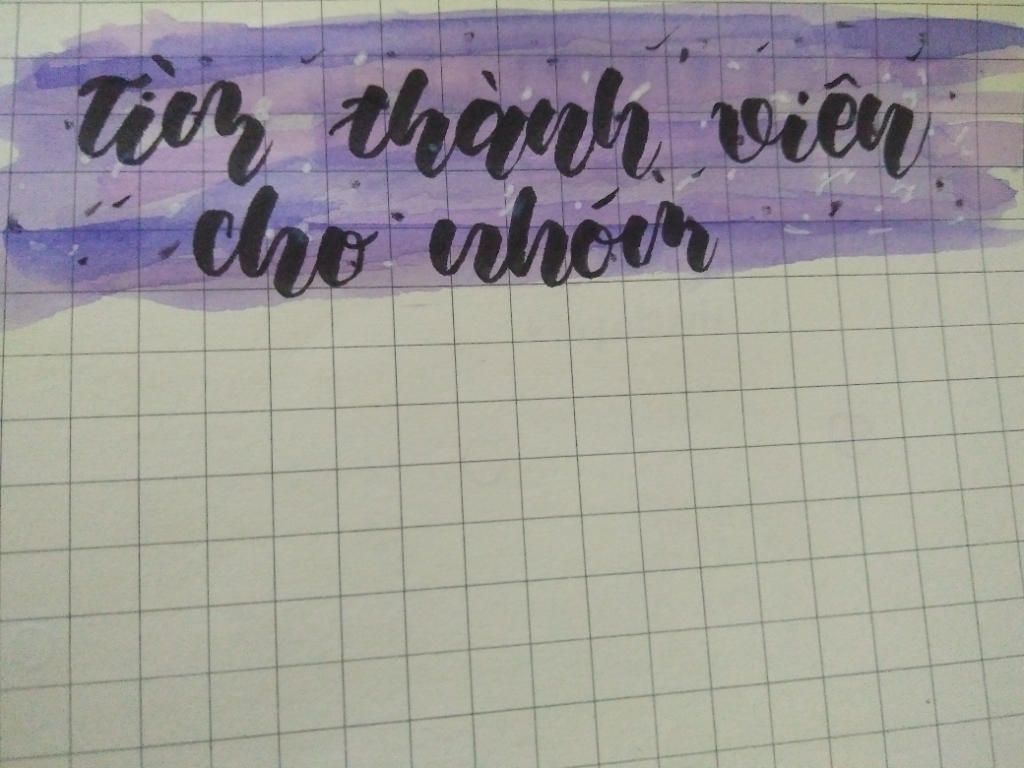 Tìm thành viên
cho nhóm